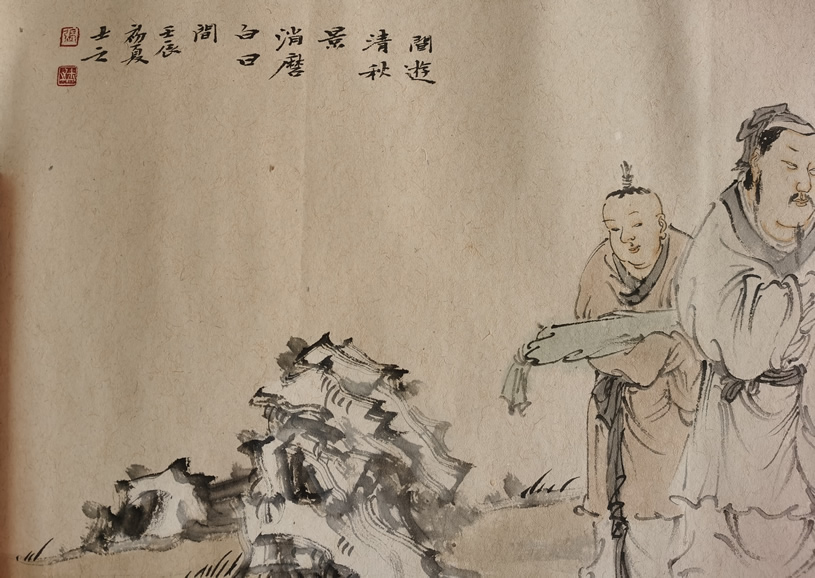 閒遊
清秋
景
消磨
白日
間
壬辰
初夏
士云